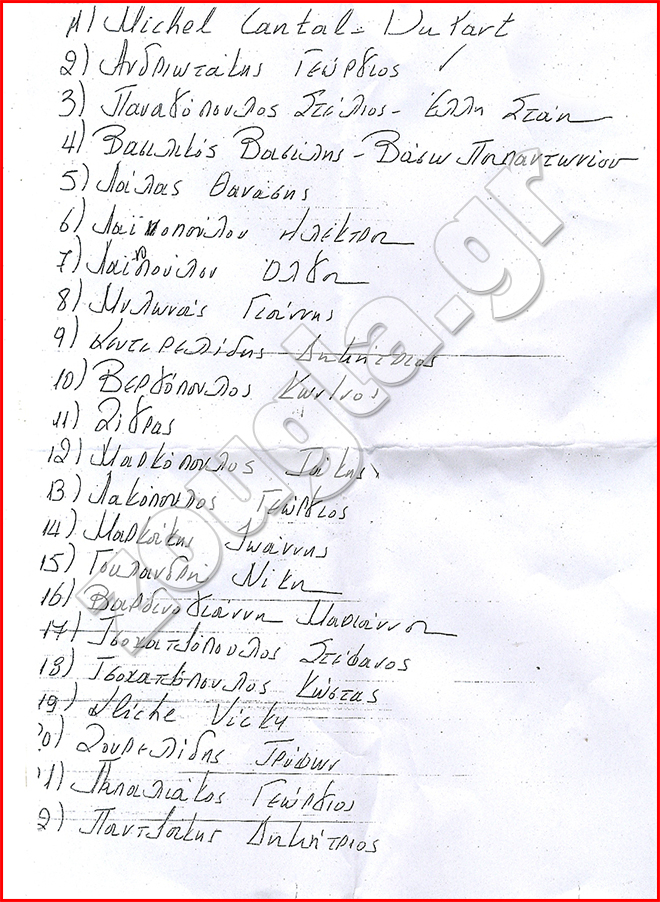 1) Michel Cantal-Dupart
2) Ανδριωτάκης Γεώργιος ✓
3) Παναγόπουλος Στέλιος - Έλλη Στάη
4) Βασιλικός Βασίλης - Βάσω Παπαντωνίου
5) Λάλας Θανάσης
6) Λαϊνοπούλου Ηλέκτρα
7) Λαϊνοπούλου Όλγα
8) Μυλωνάς Γιάννης
9) Δημήτριος
10) Βεργόπουλος Κων/νος
11) Ζίγρας
12) Μαρκόπουλος Τάκης
13) Λακόπουλος Γεώργιος
14) Μαρκάκης Ιωάννης
15) Γουλανδρή Νίκη
16) Βαρδινογιάννη Μαριάννα
17) Τσοχατζόπουλος Στέφανος
18) Τσοχατζόπουλος Κώστας
19) Vicky
20) Τρύφων
21) Γεώργιος
2) Παντζάκης Δημήτριος
zougla.gr